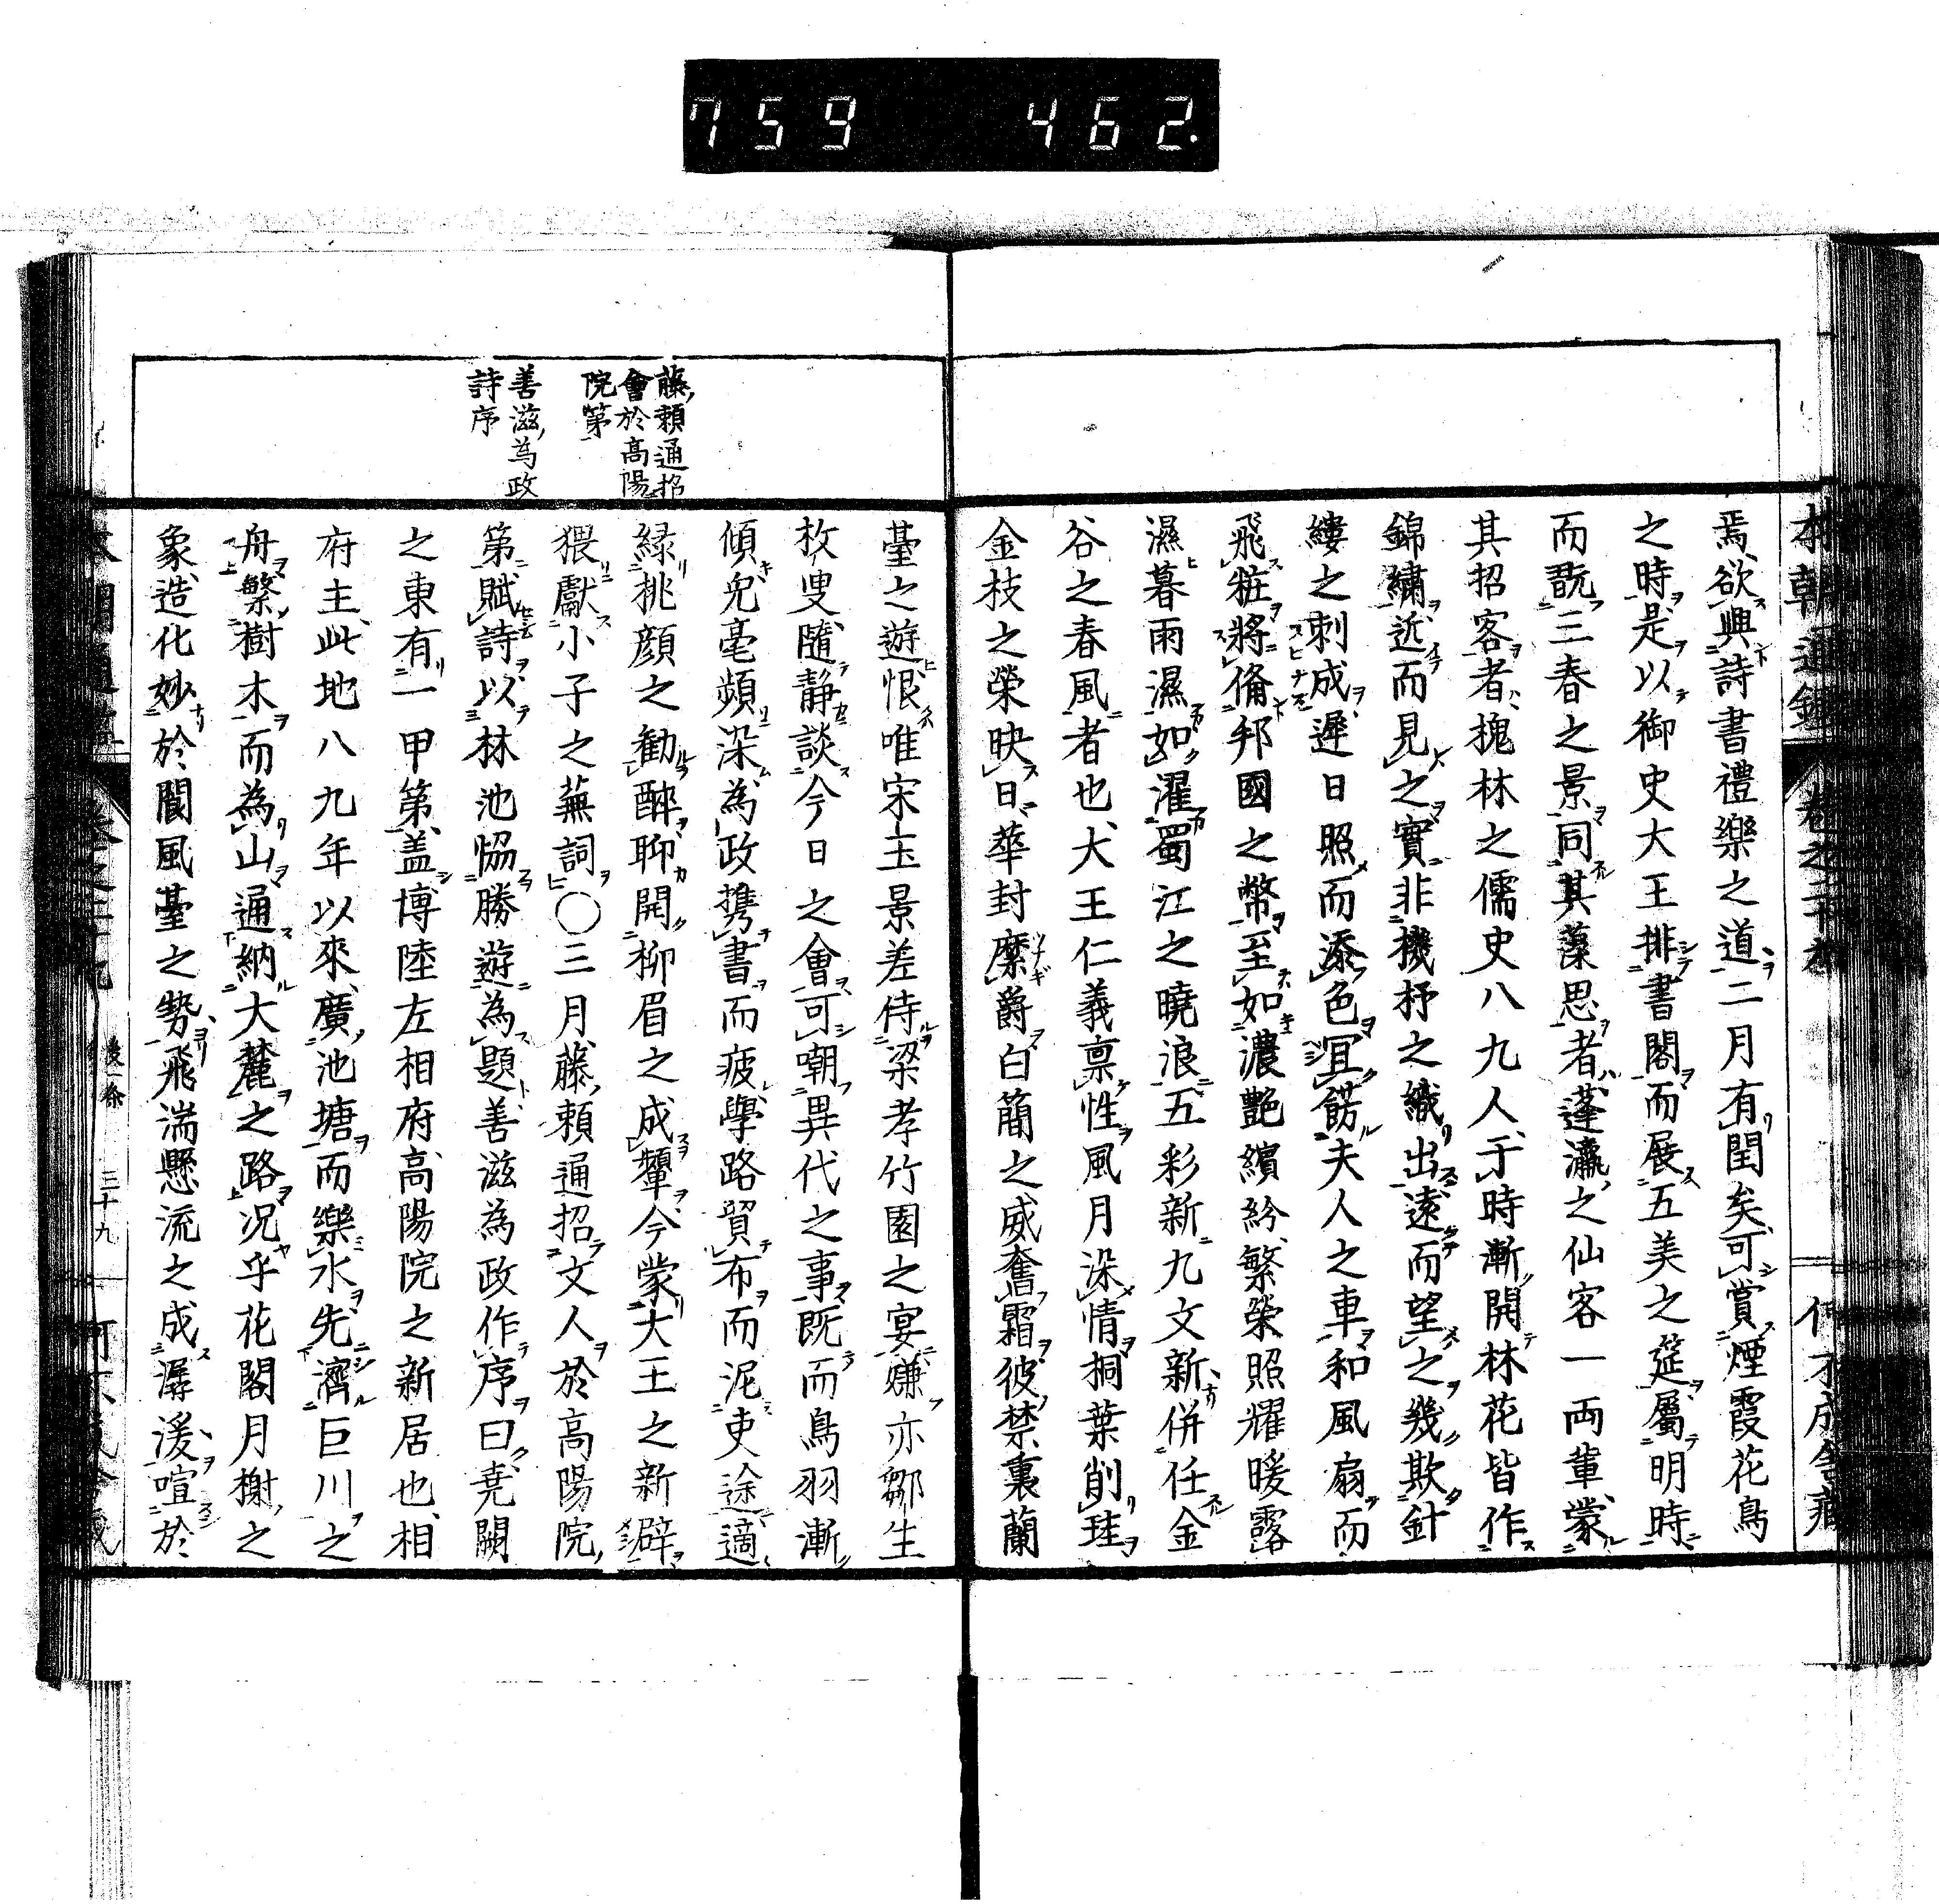 759 462.
焉欲興詩書禮樂之道二月有閏矣可賞煙霞花鳥
之時是以御史大王排書閣而展五美之筵屬明時
而翫三春之景同其藻思者蓬瀛之仙客一両輩蒙
其招客者槐林之儒史八九人于時漸開林花皆作
錦繡近而見之實非機杼之織出遠而望之幾欺針
縷之刺成遲日照而添色冝餝夫人之車和風扇而
飛粧將俻邦國之幣至如濃艷繽紛繁榮照耀暖露
濕暮雨濕如濯蜀江之曉浪五彩新九文新併任金
谷之春風者也大王仁義禀性風月染情桐葉削珪
金枝之榮映日華封縻爵白蕳之威奮霜彼禁裏蘭
臺之遊恨唯宋玉景差侍梁孝竹園之宴嫌亦鄒生
枚叟隨靜談今日之會可嘲異代之事既而鳥羽漸
傾兎毫頻染為政携書而疲學路貿布而泥吏途適
緑桃顔之勸醉聊開柳眉之成顰今蒙大王之新辟
猥獻小子之蕪詞〇三月藤頼通招文人於高陽院
第賦詩以林池恊勝遊為題善滋為政作序曰尭闕
之東有一甲第盖博陸左相府高陽院之新居也相
府主此地八九年以來廣池塘而樂水先濟巨川之
舟繁樹木而為山通納大麓之路况乎花閣月榭之
象造化妙於閬風臺之勢飛湍懸流之成潺湲喧於
藤頼通招
會於高陽
院第
善滋為政
詩序
本朝通鑑 卷之二十九
三十九